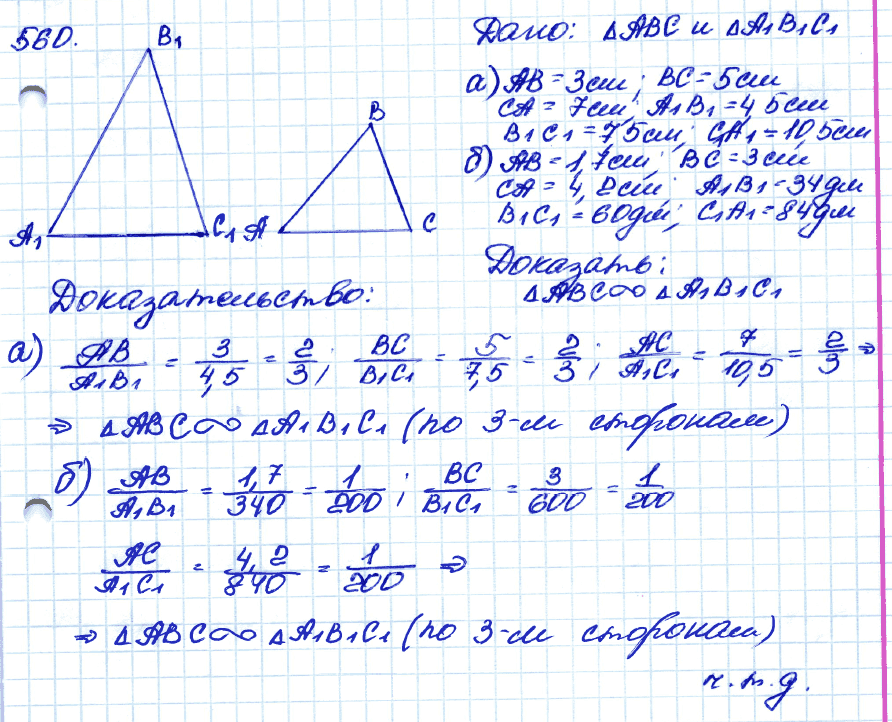 560.
B1
A1
C1
B
A
C
Дано: △ABC и △A1B1C1
а) AB = 3см; BC = 5см
CA = 7см; A1B1 = 4,5см
B1C1 = 7,5см; C1A1 = 10,5см
б) AB = 1,7см; BC = 3см
CA = 4,2см; A1B1 = 34дм
B1C1 = 60дм; C1A1 = 84дм
Доказать:
△ABC ∞ △A1B1C1
Доказательство:
а) AB/A1B1 = 3/4,5 = 2/3; BC/B1C1 = 5/7,5 = 2/3; AC/A1C1 = 7/10,5 = 2/3 ⇒
⇒ △ABC ∞ △A1B1C1 (по 3-м сторонам)
б) AB/A1B1 = 1,7/340 = 1/200; BC/B1C1 = 3/600 = 1/200
AC/A1C1 = 4,2/840 = 1/200 ⇒
⇒ △ABC ∞ △A1B1C1 (по 3-м сторонам)
ч.т.д.